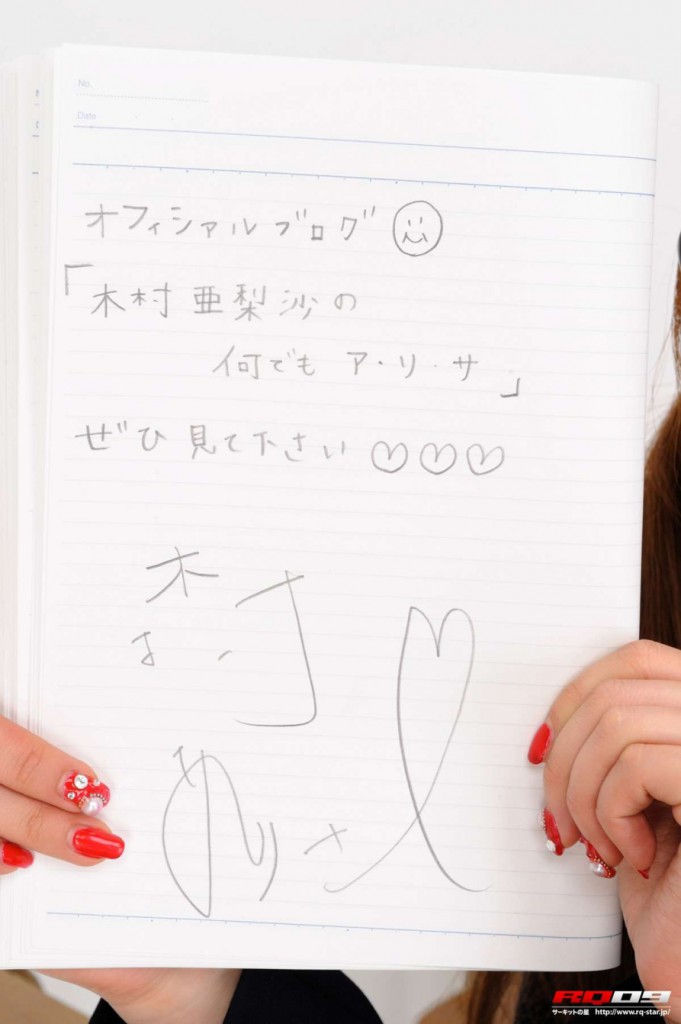 No.
Date
オフィシャルブログ
「木村亜梨沙の
何でも ア・リ・サ」
ぜひ見て下さい♡♡♡
RQ09
サーキットの星 http://www.rq-star.jp/